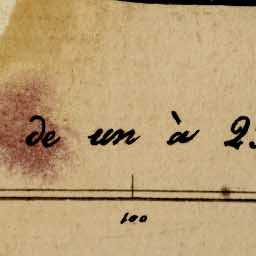 de un à 2
100